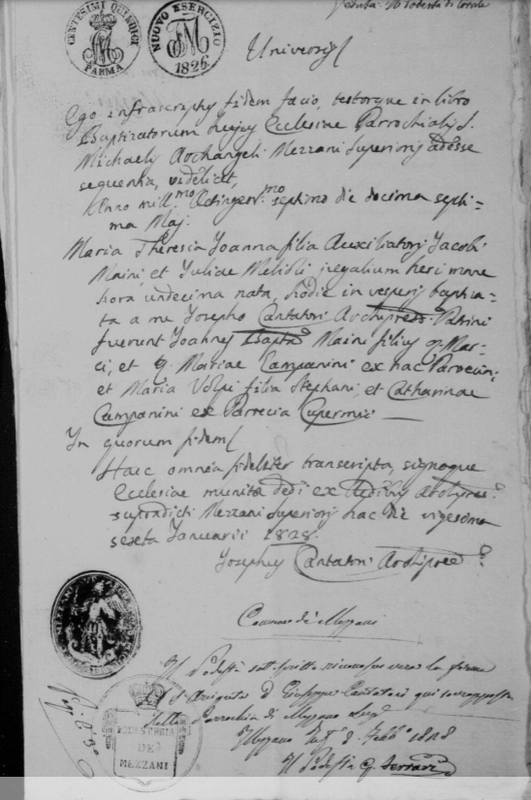 CENTESIMI QUINDICI
PARMA
NUOVO ESERCIZIO
1826
Universis
Ego infrascriptus fidem facio, testorque in libro
Baptizatorum hujus Ecclesiae Parrochialis S.
Michaelis Archangeli Mezzani Superioris adesse
sequentia, videlicet,
Anno mill.mo Octingen.mo septimo die decima septi-
ma Maj.
Maria Theresia Joanna filia Jacobi
Maini, et Juliae jugalium heri mane
hora undecima nata, hodie in vesperis baptiza-
ta a me Josepho Cantatori Archipresb. Patrini
fuerunt Joannes Bapta Maini filius q. Mar-
ci, et q. Mariae Campanini ex hac Paroecia,
et Maria Volpi filia Stephani, et Catharinae
Campanini ex Parrecia
In quorum fidem
Haec omnia fideliter transcripta, signoque
Ecclesiae munita dedi ex Aedibus
supradicti Mezzani Superioris hac die vigesima
sexta Januarii 1828.
Josephus Cantatori
Comune di Mezzani
Il Podestà sottoscritto riconosce vera la firma
d Giuseppe Cantatori qui sovrapposta
della Parrochia di Mezzano
Mezzano 8 Febb.o 1828
Il Podestà G. Ferrari
PODESTERIA
DE
MEZZANI